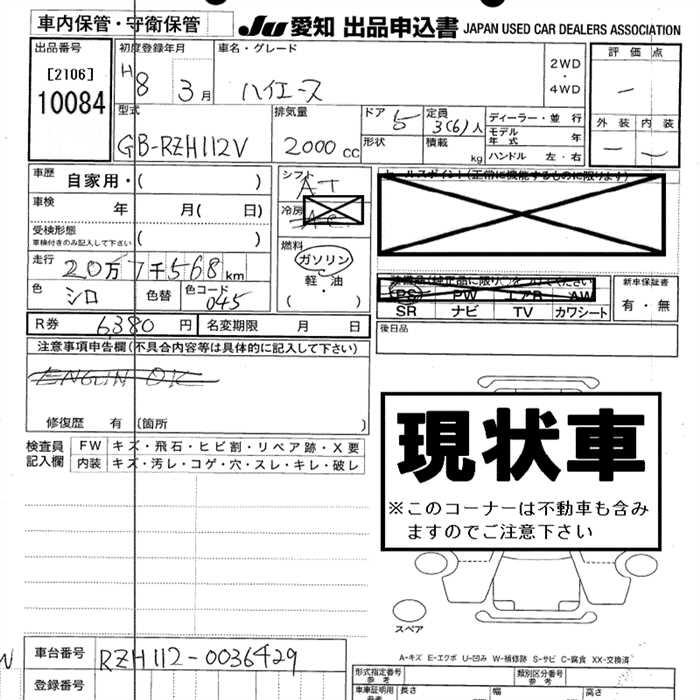 車内保管・守衛保管
JU 愛知 出品申込書 JAPAN USED CAR DEALERS ASSOCIATION
出品番号
[2106]
10084
初度登録年月
H8 3月
車名・グレード
ハイエース
2WD
・
4WD
評価点
ー
外装 内装
ー ー
型式
GB-RZH112V
排気量
2000cc
ドア 5
形状
定員
3(6)人
積載
kg
ディーラー・並行
モデル年式 年
ハンドル 左・右
車歴 自家用・( )
車検 年 月( 日)
受検形態
車検付きのみ記入して下さい ( )
走行 20万7千568km
色 シロ 色替 色コード 045
シフト
AT
冷房 AC
燃料
ガソリン
軽・油
( ・ )
セールスポイント(正常に機能するものに限ります)
PS PW エアB AW
SR ナビ TV カワシート
新車保証書
有・無
R券 6,380円 名変期限 月 日
後日品
注意事項申告欄(不具合内容等は具体的に記入して下さい)
ENGLIN OK
修復歴 有 (箇所 )
検査員
記入欄
FW キズ・飛石・ヒビ割・リペア跡・X要
内装 キズ・汚レ・コゲ・穴・スレ・キレ・破レ
現状車
※このコーナーは不動車も含み
ますのでご注意下さい
スペア
A-キズ E-エクボ U-凹み W-補修跡 S-サビ C-腐食 XX-交換済
車台番号 RZH112-0036429
登録番号
型式指定番号
参考
類別区分番号
参考
車庫証明用
参考
長さ 幅 高さ